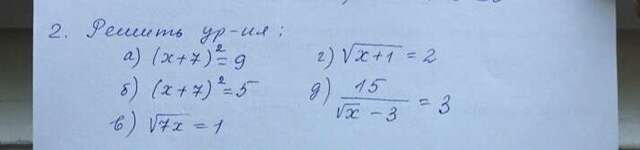 2. Решить ур-ия:
а) (x+7)²=9
б) (x+7)²=5
в) √7x = 1
г) √x+1 = 2
д) 15/(√x - 3) = 3